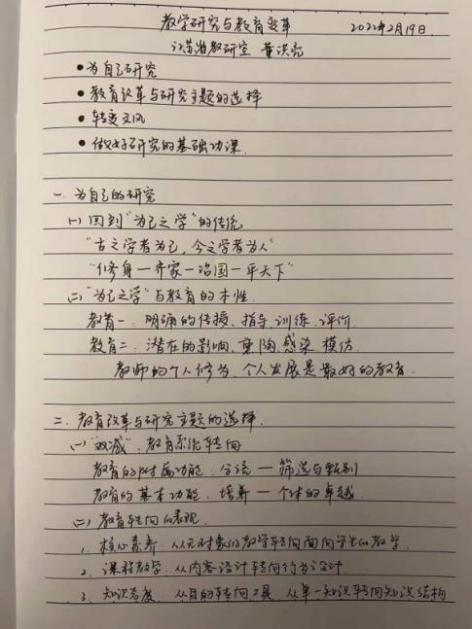 教学研究与教育变革 2022年2月19日.
江苏省教研室 董洪亮
• 为自己研究
• 教育改革与研究主题的选择
• 转变文风
• 做好研究的基础功课.
一. 为自己的研究
(一) 回到"为己之学"的传统
"古之学者为己, 今之学者为人"
"修身—齐家—治国—平天下"
(二) "为己之学"与教育的本性.
教育一. 明确的传授、指导、训练、评价.
教育二: 潜在的影响、熏陶、感染、模仿.
教师的个人修为、个人发展是最好的教育.
二. 教育改革与研究主题的选择.
(一) "双减". 教育系统转向
教育的附属功能: 分流 — 筛选与甄别
教育的基本功能. 培养 — 个体的卓越.
(二) 教育转向的表现.
1. 核心素养. 从无对象的教学转向面向学生的教学.
2. 课程教学. 从内容设计转向行为设计
3. 知识态度. 从目的转向工具 从单一知识转向知识结构